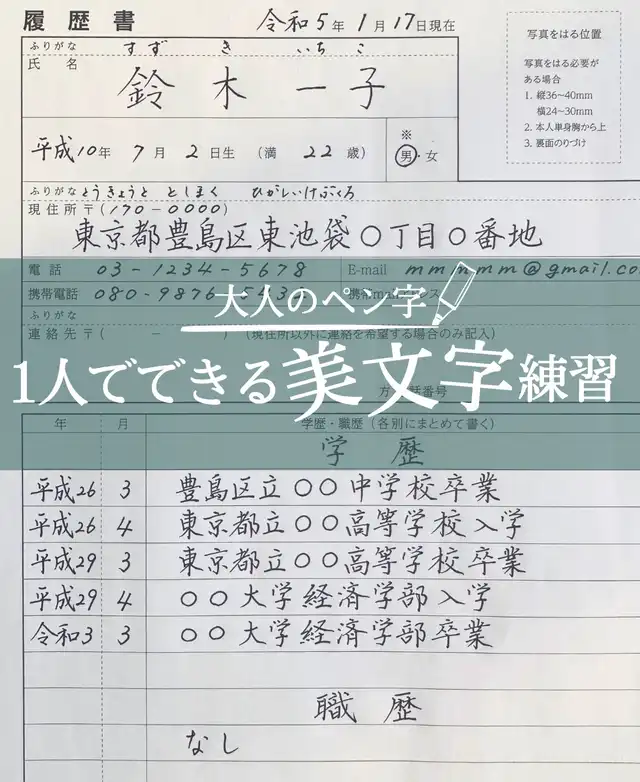 履歴書 令和5年1月17日現在
ふりがな すずき いちこ
氏名 鈴木一子
平成10年7月2日生 (満 22 歳) ※ 男・女
写真をはる位置
写真をはる必要が
ある場合
1. 縦36〜40mm
横24〜30mm
2. 本人単身胸から上
3. 裏面のりづけ
ふりがな とうきょうと としまく ひがしいけぶくろ
現住所〒(170-0000)
東京都豊島区東池袋〇丁目〇番地
電話 03-1234-5678 E-mail mmmmmm@gmail.co
携帯電話 080-9876-543 携帯mail
ふりがな
大人のペン字
連絡先〒( - ) (現住所以外に連絡を希望する場合のみ記入)
1人でできる美文字練習
方 電話番号
年 月 学歴・職歴(各別にまとめて書く)
学歴
平成26 3 豊島区立〇〇中学校卒業
平成26 4 東京都立〇〇高等学校入学
平成29 3 東京都立〇〇高等学校卒業
平成29 4 〇〇大学経済学部入学
令和3 3 〇〇大学経済学部卒業
職歴
なし